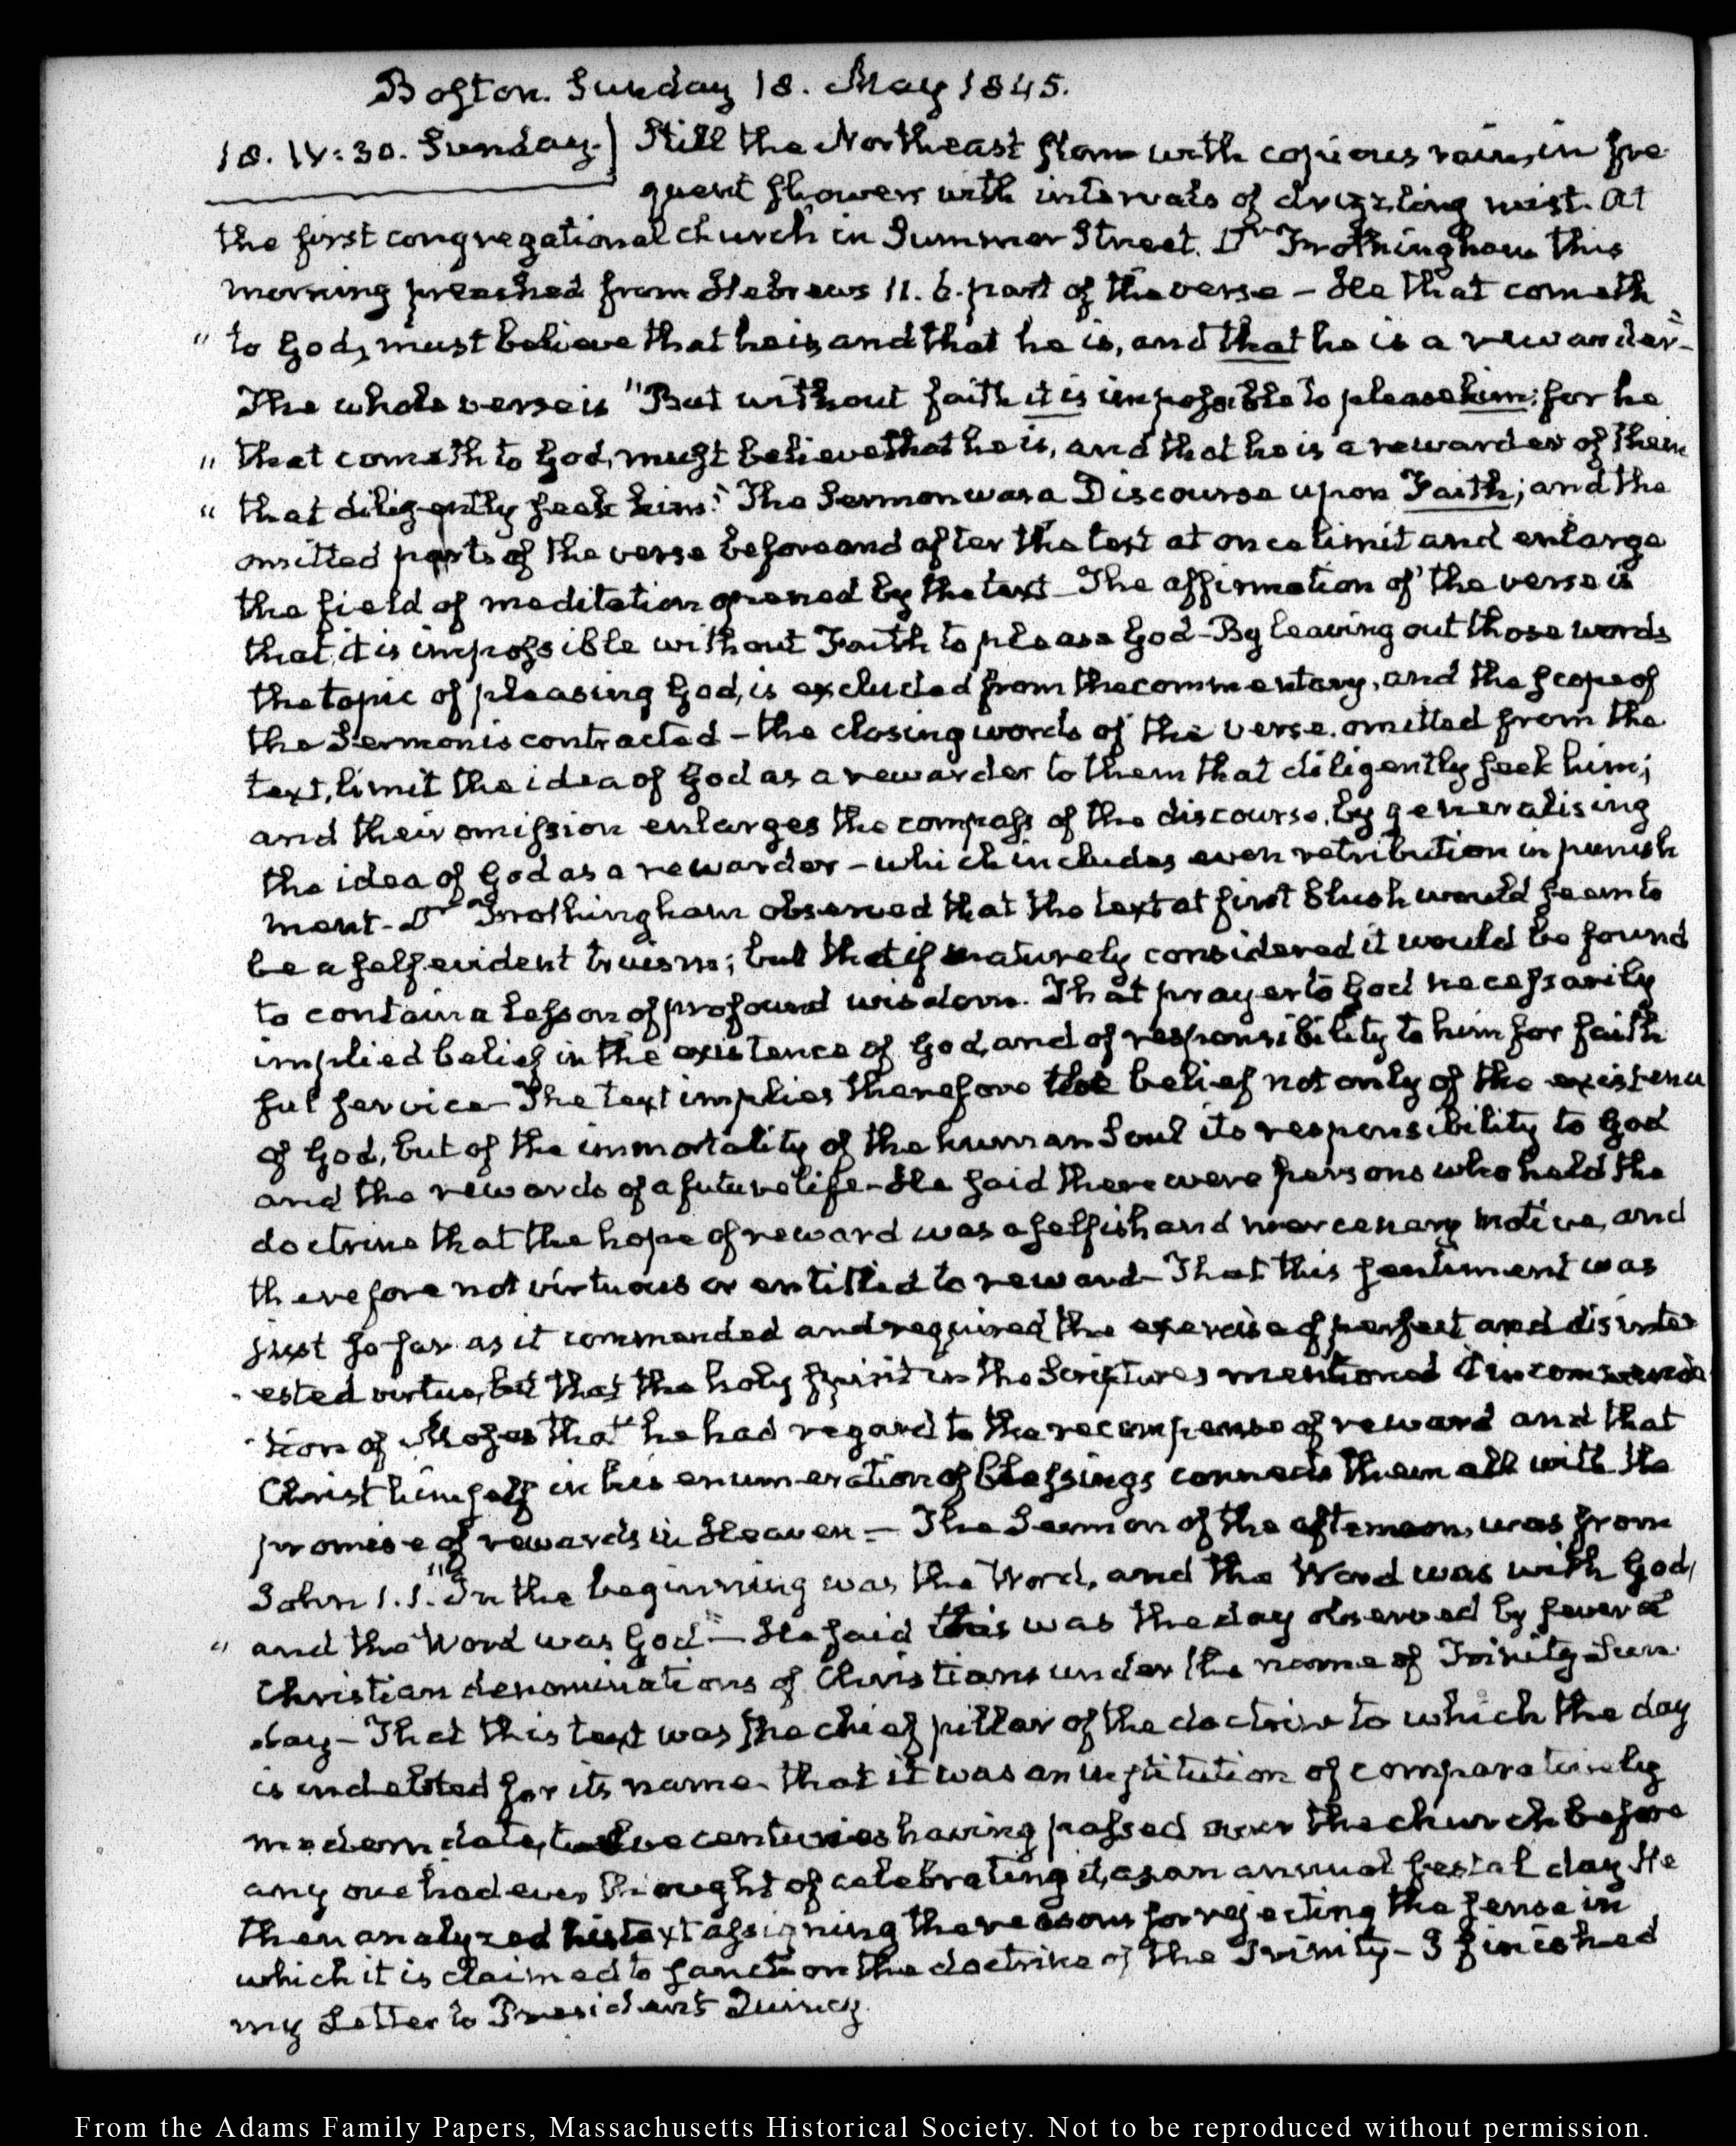 Boston. Sunday 18. May 1845.
18. IV:30. Sunday.) Still the Northeast storm with copious rain, in fre
quent showers with intervals of drizzling mist. At
the first congregational church in Summer Street. Dr Frothingham this
morning preached from Hebrews 11. 6. part of the verse – He that cometh
" to God, must believe that he is, and that he is, and that he is a rewarder"–
The whole verse is "But without faith it is impossible to please him: for he
" that cometh to God, must believe that he is, and that he is a rewarder of them
" that diligently seek him." The Sermon was a Discourse upon Faith; and the
omitted parts of the verse before and after the text at once limit and enlarge
the field of meditation opened by the text – The affirmation of the verse is
that, it is impossible without Faith to please God – By leaving out those words
the topic of pleasing God, is excluded from the commentary, and the scope of
the Sermon is contracted – the closing words of the verse. omitted from the
text, limit the idea of God as a rewarder to them that diligently seek him;
and their omission enlarges the compass of the discourse, by generalising
the idea of God as a rewarder – which includes even retribution in punish
ment – Dr Frothingham observed that the text at first blush would seem to
be a self evident truism; but that if maturely considered it would be found
to contain a lesson of profound wisdom. That prayer to God necessarily
implied belief in the existence of God, and of responsibility to him for faith
ful service – The text implies therefore the belief not only of the existence
of God, but of the immortality of the human Soul its responsibility to God
and the rewards of a future life – He said there were persons who held the
doctrine that the hope of reward was a selfish and mercenary motive, and
therefore not virtuous or entitled to reward – That this sentiment was
just so far as it commended and required the exercise of perfect and disinter
ested virtue, but that the holy spirit in the Scriptures mentioned it in commenda
tion of Moses that he had regard to the recompense of reward and that
Christ himself in his enumeration of blessings connects them all with the
promise of rewards in Heaven – The Sermon of the afternoon, was from
John 1.1. "In the beginning was the Word, and the Word was with God,
" and the Word was God" – He said this was the day observed by several
Christian denominations of Christians under the name of Trinity Sun
day – That this text was the chief pillar of the doctrine to which the day
is indebted for its name. that it was an institution of comparatively
modern date, twelve centuries having passed over the church before
any one had ever thought of celebrating it, as an annual festal day. He
then analyzed his text assigning the reasons for rejecting the sense in
which it is claimed to sanction the doctrine of the Trinity – I finished
my Letter to President Quincy.
From the Adams Family Papers, Massachusetts Historical Society. Not to be reproduced without permission.